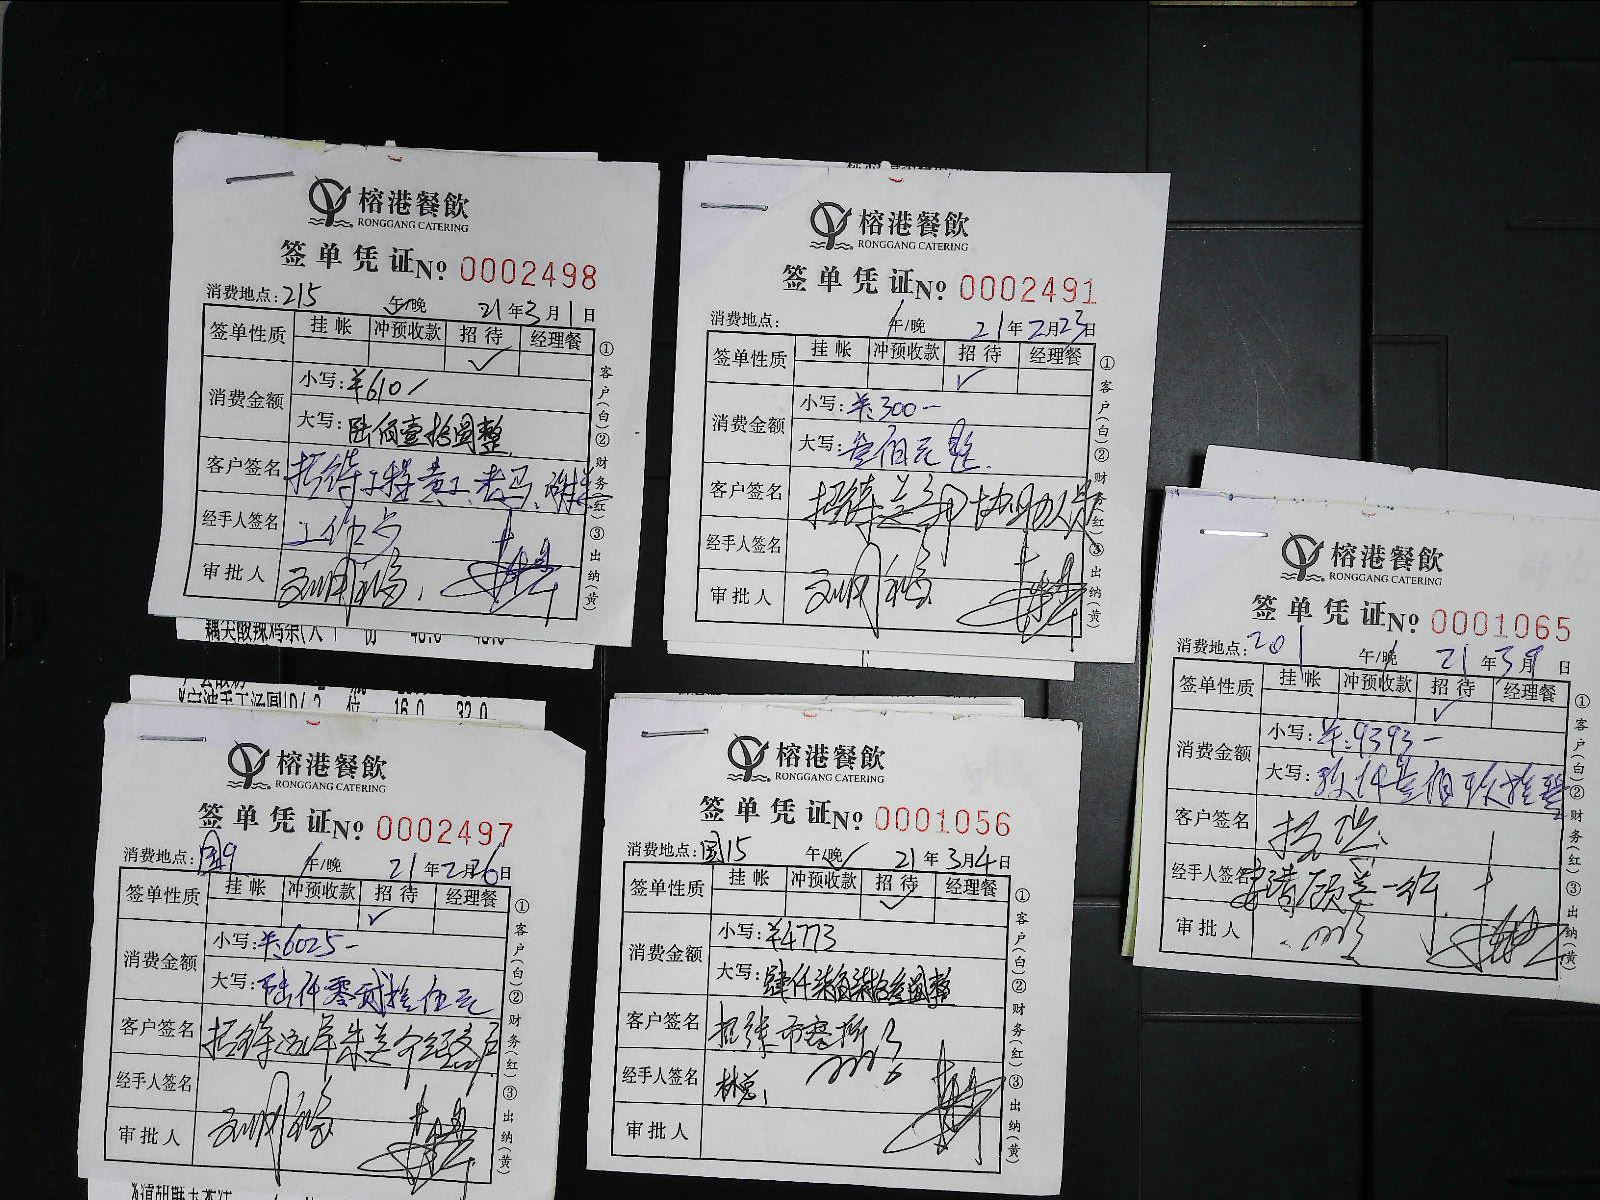 榕港餐飲
RONGGANG CATERING
签单凭证№ 0002498
消费地点:215 午/晚 21年3月1日
签单性质 挂帐 冲预收款 招待 经理餐
✓
消费金额
小写:¥610/
大写:陆佰壹拾圆整
客户签名 招待
经手人签名
审批人
①客户(白)②财务(红)③出纳(黄)
藕尖酸辣鸡杂(大 1 份 48.0 48.0
榕港餐飲
RONGGANG CATERING
签单凭证№ 0002491
消费地点: 午/晚 21年2月23日
签单性质 挂帐 冲预收款 招待 经理餐
✓
消费金额
小写:¥:300一
大写:叁佰元整.
客户签名 招待
经手人签名
审批人
①客户(白)②财务(红)③出纳(黄)
榕港餐飲
RONGGANG CATERING
签单凭证№ 0001065
消费地点:201 午/晚 21年3月9日
签单性质 挂帐 冲预收款 招待 经理餐
✓
消费金额
小写:¥:9393一
大写:玖仟叁佰玖拾
客户签名
经手人签名
审批人
①客户(白)②财务(红)③出纳(黄)
%宁波手工汤圆10/ 2 位 16.0 32.0
榕港餐飲
RONGGANG CATERING
签单凭证№ 0002497
消费地点:国9 午/晚 21年2月26日
签单性质 挂帐 冲预收款 招待 经理餐
✓
消费金额
小写:¥:6025一
大写:陆仟零贰拾伍元
客户签名 招待
经手人签名
审批人
①客户(白)②财务(红)③出纳(黄)
榕港餐飲
RONGGANG CATERING
签单凭证№ 0001056
消费地点:国15 午/晚 21年3月4日
签单性质 挂帐 冲预收款 招待 经理餐
✓
消费金额
小写:¥4773
大写:肆仟柒佰柒拾叁圆整
客户签名
经手人签名 林总,
审批人
①客户(白)②财务(红)③出纳(黄)